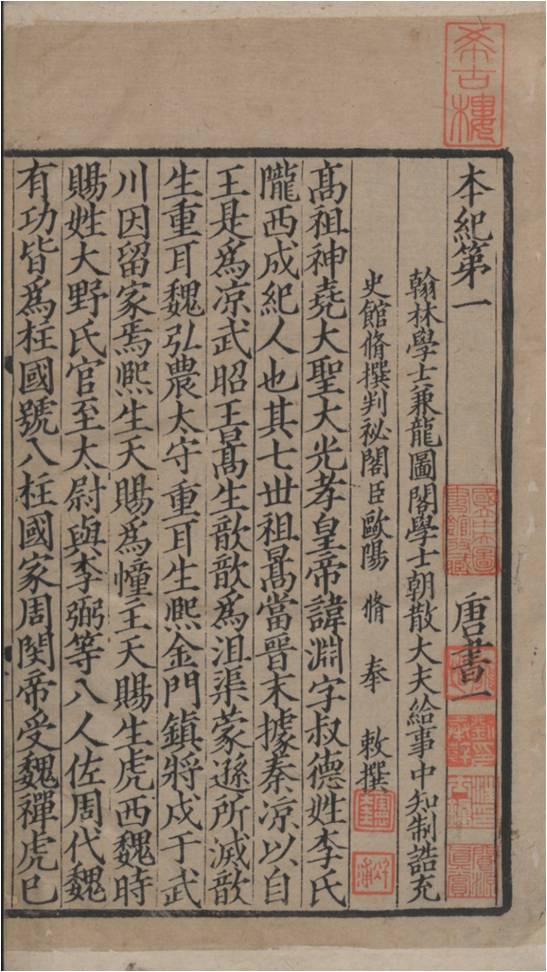 希古樓
本紀第一 唐書一
翰林學士兼龍圖閣學士朝散大夫給事中知制誥充
史館脩撰判祕閣臣歐陽 脩 奉 敕撰
髙祖神堯大聖大光孝皇帝諱淵字叔德姓李氏
隴西成紀人也其七世祖暠當晉末據秦凉以自
王是爲凉武昭王暠生歆歆爲沮渠蒙遜所滅歆
生重耳魏弘農太守重耳生熈金門鎮將戍于武
川因留家焉熈生天賜爲幢主天賜生虎西魏時
賜姓大野氏官至太尉與李弼等八人佐周代魏
有功皆爲柱國號八柱國家周閔帝受魏禪虎已